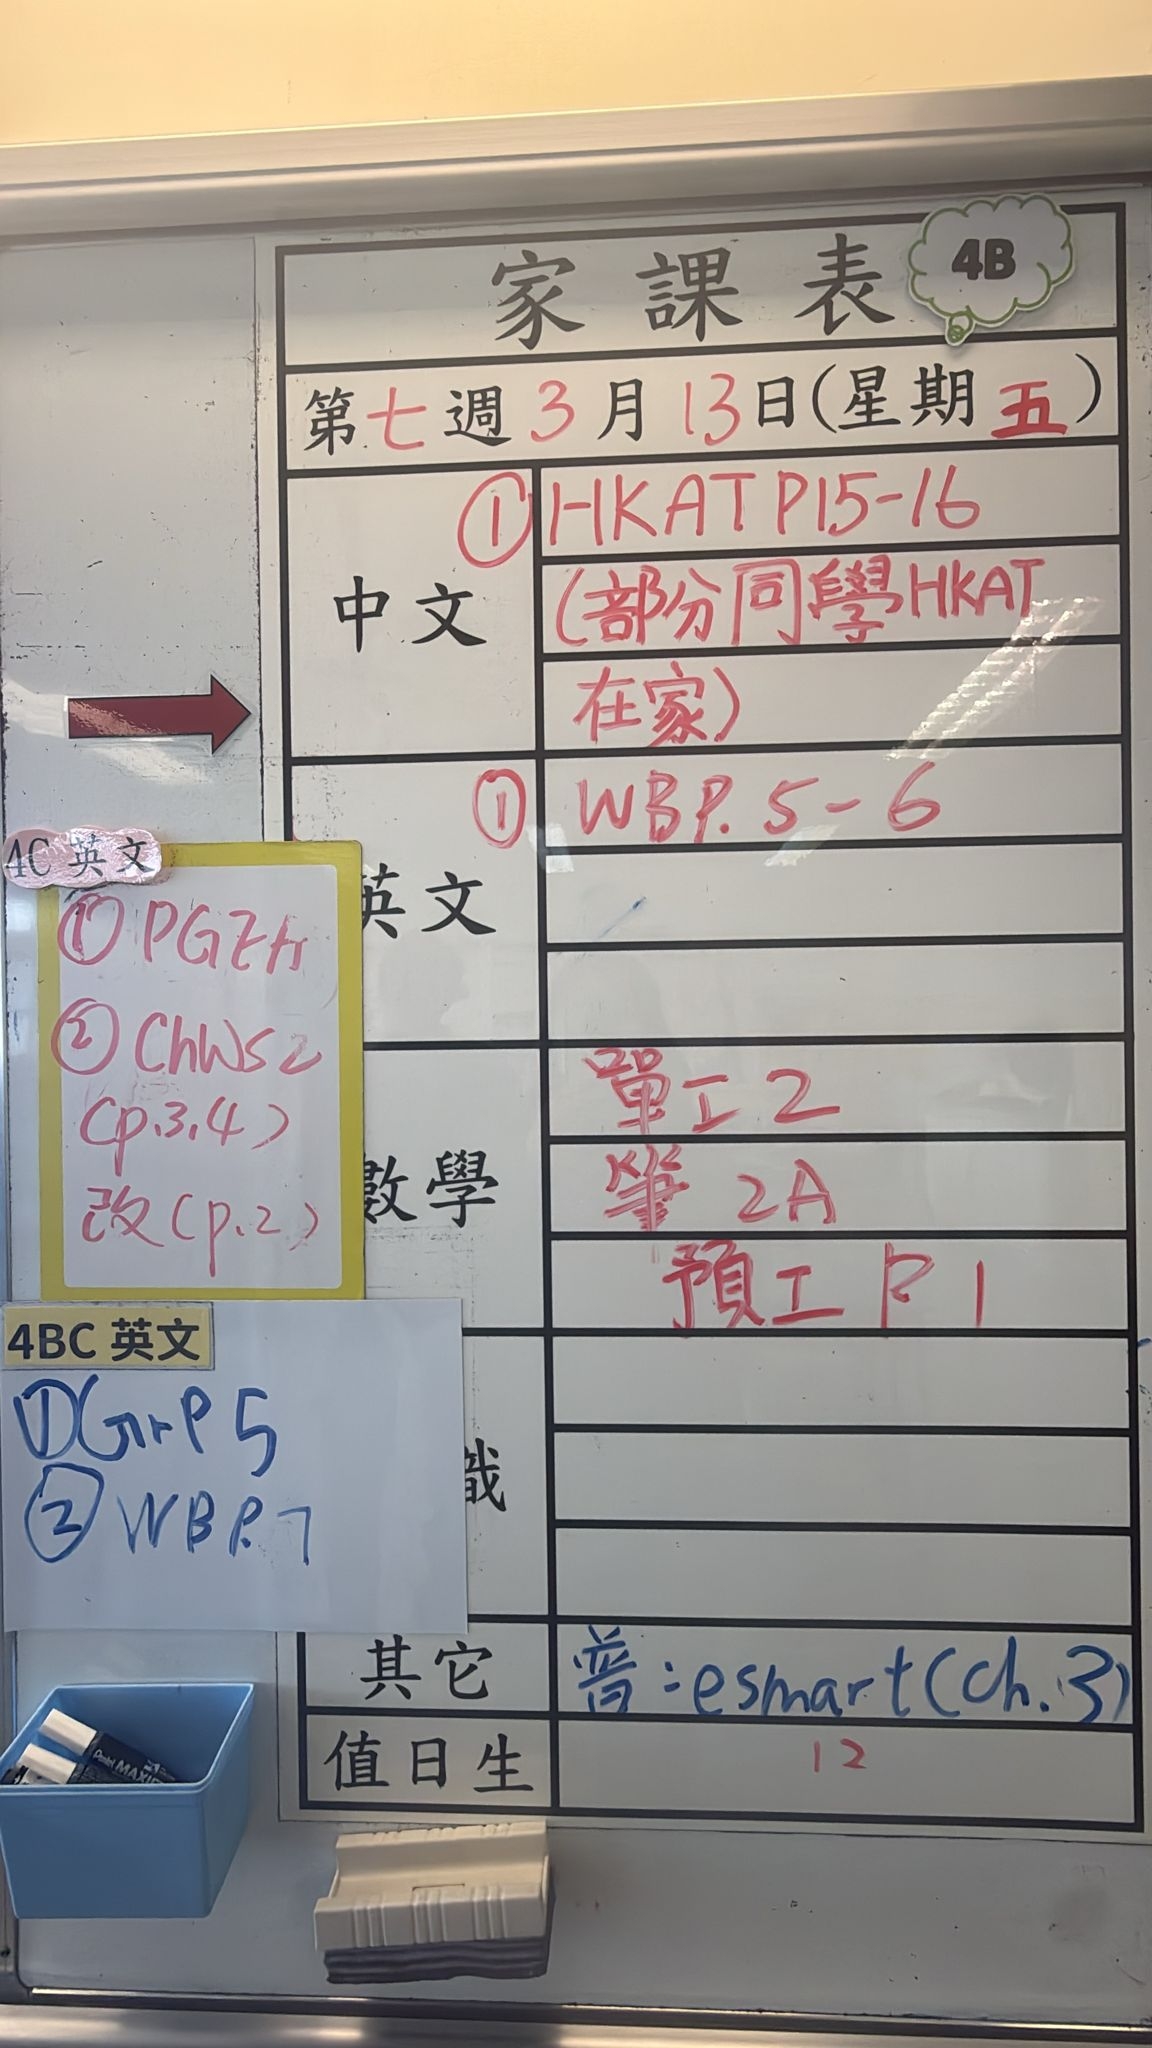 家課表 4B
第七週3月13日(星期五)
中文
① HKAT P15-16
(部分同學HKAT
在家)
英文
① WBP. 5-6
數學
單工2
筆 2A
預工 P.1
識
其它
普:esmart(Ch.3)
值日生
12
4C 英文
①
② ChWS2
(p.3,4)
改(p.2)
4BC 英文
①GrP5
② WBP.7